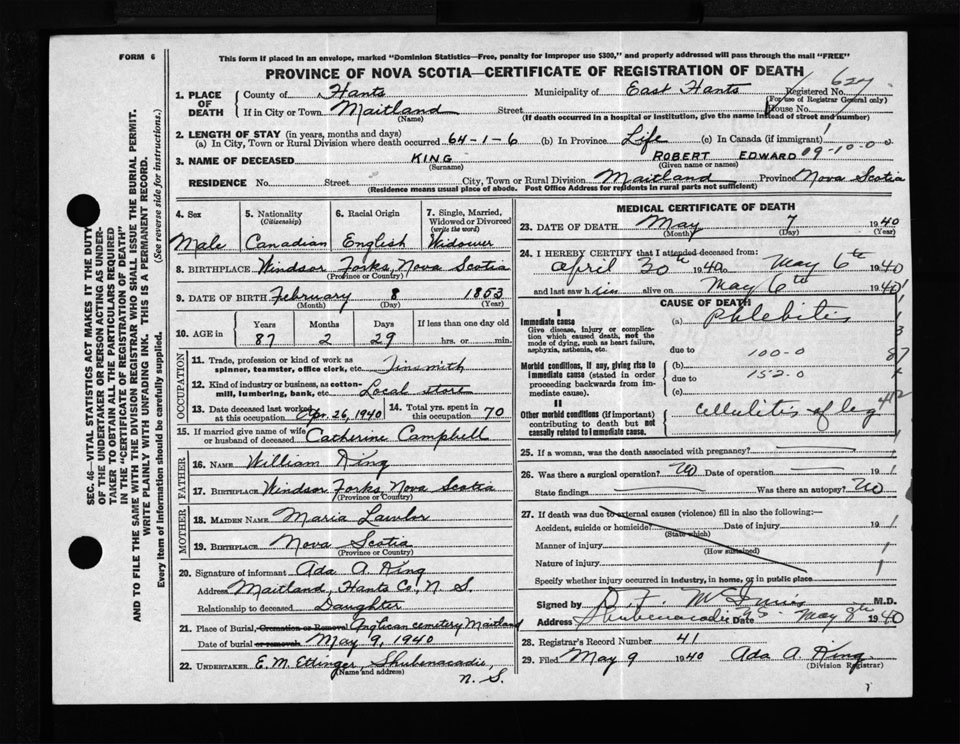 FORM 6
This form if placed in an envelope, marked "Dominion Statistics—Free, penalty for improper use $300," and properly addressed will pass through the mail "FREE"
PROVINCE OF NOVA SCOTIA—CERTIFICATE OF REGISTRATION OF DEATH
627
1. PLACE OF DEATH
County of Hants Municipality of East Hants Registered No.
(For use of Registrar General only)
If in City or Town Maitland Street House No.
(Name) (If death occurred in a hospital or institution, give the name instead of street and number)
2. LENGTH OF STAY (in years, months and days)
(a) In City, Town or Rural Division where death occurred 64-1-6 (b) In Province Life (c) In Canada (if immigrant)
3. NAME OF DECEASED KING ROBERT EDWARD 09-10-00
(Surname) (Given name or names)
RESIDENCE No. Street City, Town or Rural Division Maitland Province Nova Scotia
(Residence means usual place of abode. Post Office Address for residents in rural parts not sufficient)
4. Sex
Male
5. Nationality
(Citizenship)
Canadian
6. Racial Origin
English
7. Single, Married, Widowed or Divorced
(write the word)
Widower
8. BIRTHPLACE Windsor Forks, Nova Scotia
(Province or Country)
9. DATE OF BIRTH February 8 1853
(Month) (Day) (Year)
10. AGE in
Years Months Days If less than one day old
87 2 29 hrs. or min.
OCCUPATION
11. Trade, profession or kind of work as spinner, teamster, office clerk, etc. Tinsmith
12. Kind of industry or business, as cotton-mill, lumbering, bank, etc. Local store
13. Date deceased last worked at this occupation Apr. 26, 1940 14. Total yrs. spent in this occupation 70
15. If married give name of wife or husband of deceased Catherine Campbell
FATHER
16. NAME William King
17. BIRTHPLACE Windsor Forks, Nova Scotia
(Province or Country)
MOTHER
18. MAIDEN NAME Maria Lawlor
19. BIRTHPLACE Nova Scotia
(Province or Country)
20. Signature of informant Ada A. King
Address Maitland, Hants Co., N. S.
Relationship to deceased Daughter
21. Place of Burial, Cremation or Removal Anglican cemetery Maitland
Date of burial or removal May 9, 1940
22. UNDERTAKER E. M. Ettinger, Shubenacadie,
(Name and address) N. S.
MEDICAL CERTIFICATE OF DEATH
23. DATE OF DEATH May 7 1940
(Month) (Day) (Year)
24. I HEREBY CERTIFY that I attended deceased from:
April 30th 1940 to May 6th 1940
and last saw him alive on May 6th 1940
CAUSE OF DEATH
I
Immediate cause
Give disease, injury or complication which caused death, not the mode of dying, such as heart failure, asphyxia, asthenia, etc.
(a) Phlebitis
due to 100-0
Morbid conditions, if any, giving rise to immediate cause (stated in order proceeding backwards from immediate cause).
(b)
due to 152-0
(c)
II
Other morbid conditions (if important) contributing to death but not causally related to immediate cause.
Cellulitis of leg
25. If a woman, was the death associated with pregnancy?
26. Was there a surgical operation? No Date of operation 19
State findings Was there an autopsy? No
27. If death was due to external causes (violence) fill in also the following:
Accident, suicide or homicide? Date of injury 19
(State which)
Manner of injury
(How sustained)
Nature of injury
Specify whether injury occurred in industry, in home, or in public place
Signed by M.D.
Address Shubenacadie NS Date May 8th 1940
28. Registrar's Record Number 41
29. Filed May 9 1940 Ada A. King
(Division Registrar)
SEC. 46—VITAL STATISTICS ACT MAKES IT THE DUTY
OF THE UNDERTAKER OR PERSON ACTING AS UNDER-
TAKER TO OBTAIN ALL THE PARTICULARS REQUIRED
IN THE "CERTIFICATE OF REGISTRATION OF DEATH"
AND TO FILE THE SAME WITH THE DIVISION REGISTRAR WHO SHALL ISSUE THE BURIAL PERMIT.
WRITE PLAINLY WITH UNFADING INK. THIS IS A PERMANENT RECORD.
Every item of information should be carefully supplied. (See reverse side for instructions.)